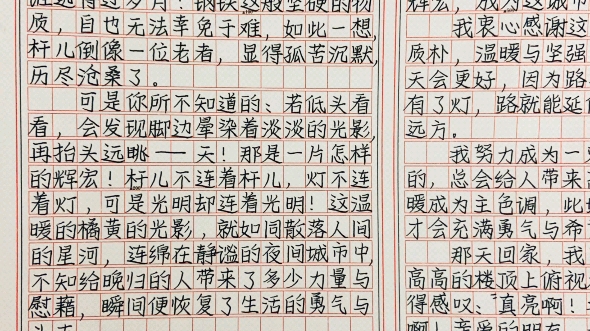 逃得过岁月？钢铁这般坚硬的物
质，自也无法幸免于难，如此一想，
杆儿倒像一位老者，显得孤苦沉默，
历尽沧桑了。
可是你所不知道的、若低头看
看，会发现脚边晕染着淡淡的光影，
再抬头远眺——天！那是一片怎样
的辉宏！杆儿不连着杆儿，灯不连
着灯，可是光明却连着光明！这温
暖的橘黄的光影，就如同散落人间
的星河，连绵在静谧的夜间城市中，
不知给晚归的人带来了多少力量与
慰藉，瞬间便恢复了生活的勇气与
辉宏，成为这城市
我衷心感谢这
质朴，温暖与坚强
天会更好，因为路
有了灯，路就能延伸
远方。
我努力成为一
的，总会给人带来
暖成为主色调，此
才会充满勇气与希
那天回家，我
高高的楼顶上俯视
得感叹、“真亮啊！
啊！亲爱的朋友